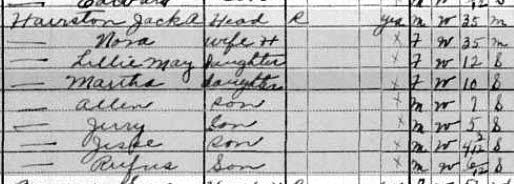 Edward
Hairston Jack A Head R yes m W 35 m
— Nora wife H x F W 35 m
— Lillie May daughter x F W 12 S
— Martha daughter x F W 10 S
— Allen son x m W 7 S
— Jerry Son x m W 5 S
— Jesse son x m W S
— Rufus Son x m W S